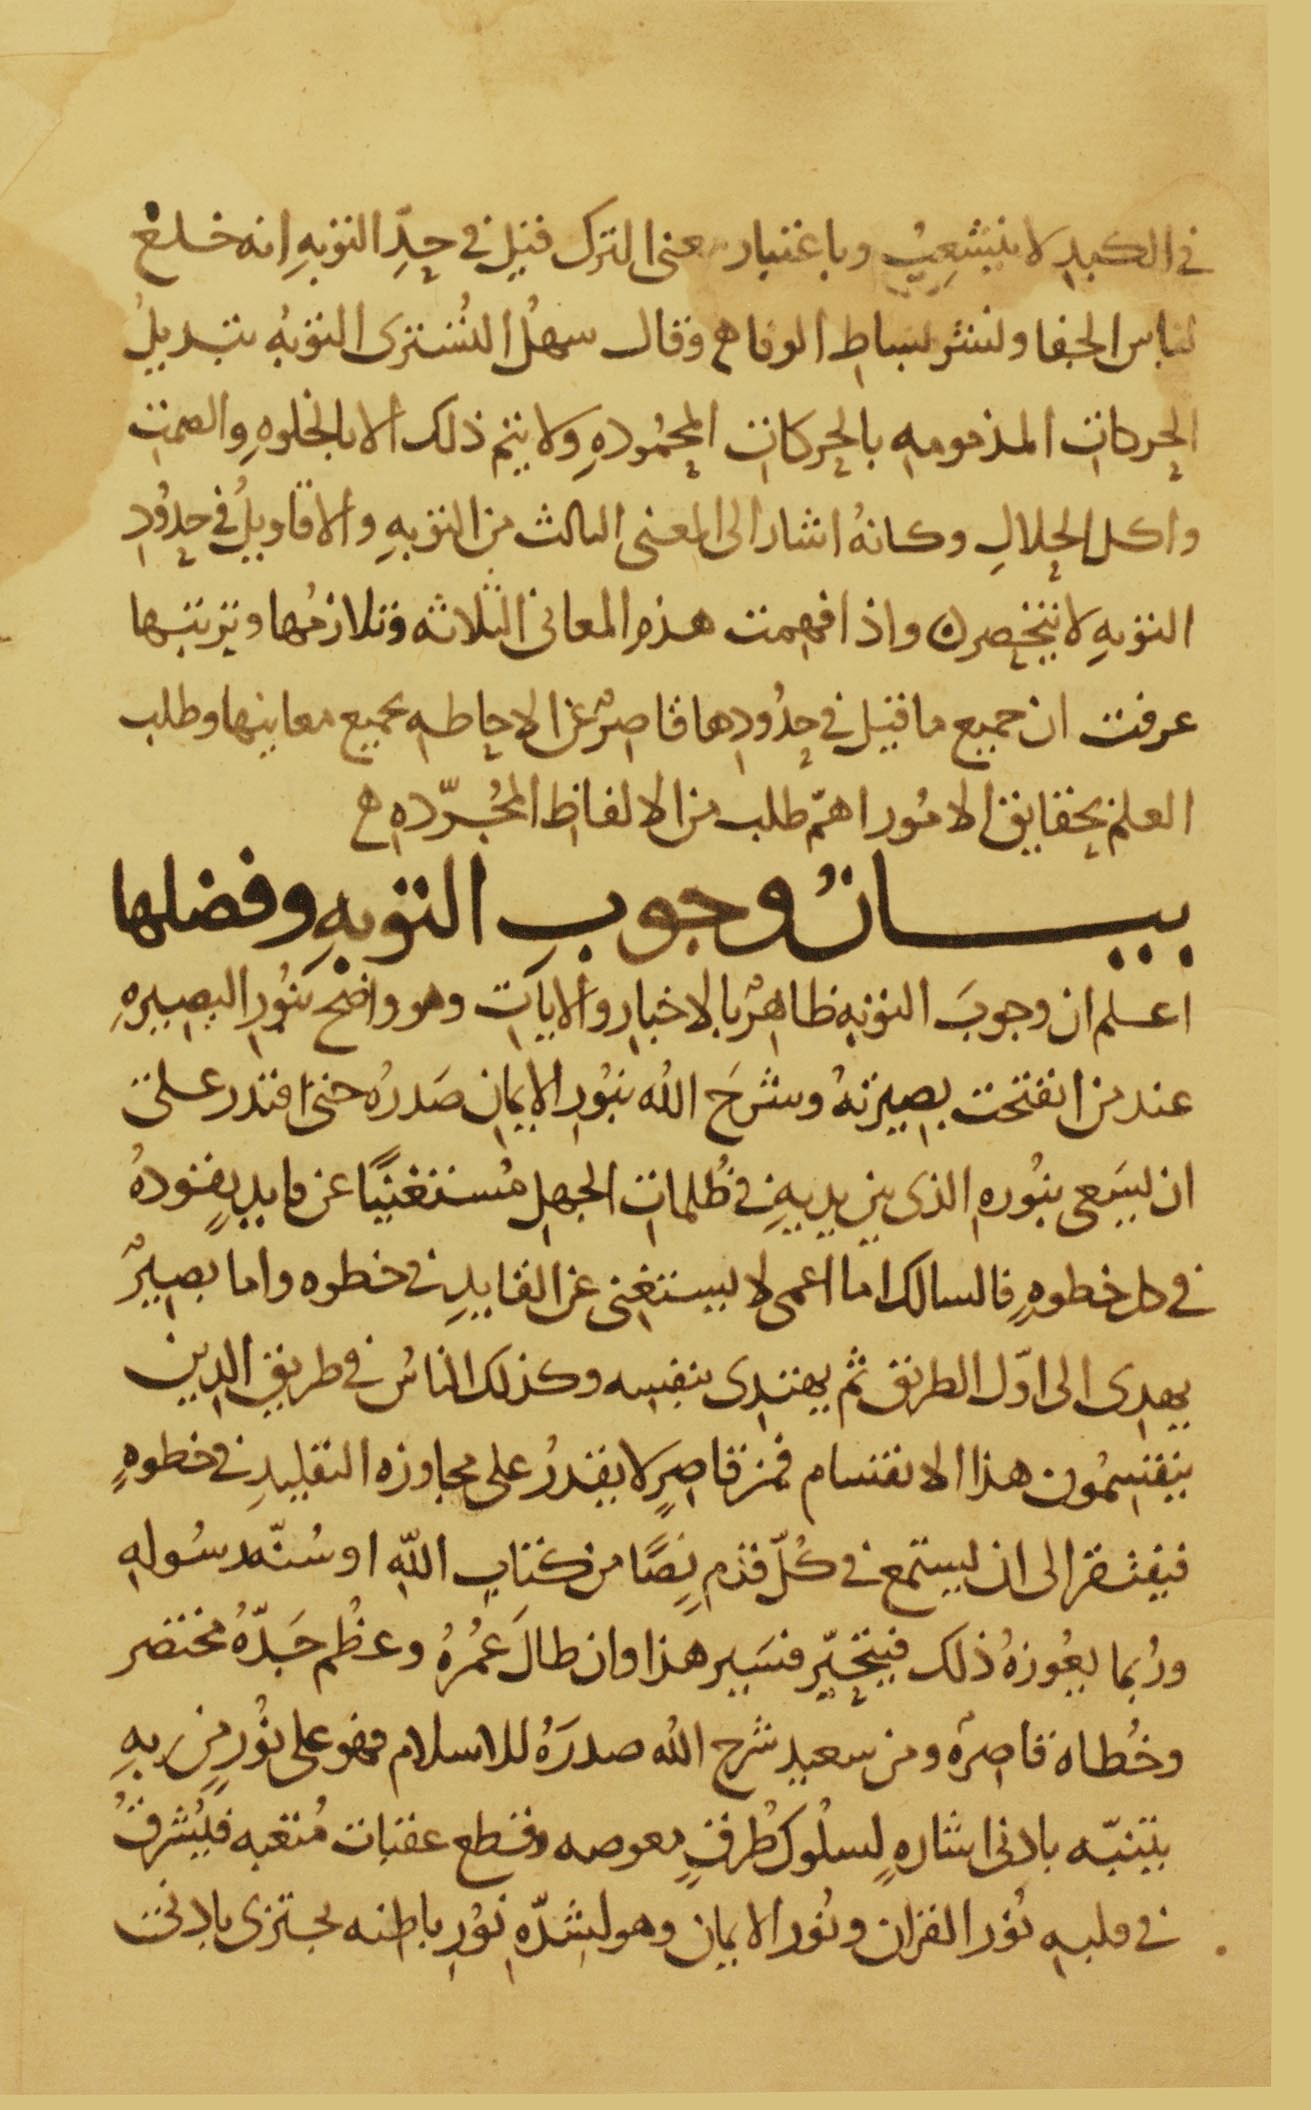 في الكبد لا ينشعب وباعتبار معنى الترك قيل في حدِّ التوبهِ انه خلع
لباس الجفا ونشر بساط الوفا ه وقال سهلُ التُستري التوبهُ تبديلُ
الحركات المذمومه بالحركات المحمُودهِ ولا يتم ذلك الا بالخلوهِ والصمت
واكل الحلالِ وكانهُ اشار الى المعنى الثالث من التوبهِ والاقاويلُ في حدُودِ
التوبهِ لا تنحصر ه واذا فهمت هذهِ المعاني الثلاثه وتلازمُها وترتيبها
عرفت ان جميع ما قيل في حدُودِها قاصرٌ عن الاحاطه بجميع معانيها وطلب
العلم بحقايق الامُور اهمّ طلب من الالفاظ المجُرّده ه
بيـــانُ وجوبِ التوبهِ وفضلها
اعلم ان وجوبَ التوبه ظاهرٌ بالاخبارِ والايات وهو واضح بنُورِ البصيرهِ
عند من انفتحت بصيرتهُ وشرحَ اللهُ بنُورِ الايمانِ صَدرُه حتى اقتدر على
ان يسَعى بنُوره الذي بين يديهِ في ظُلمات الجهلِ مُستغنيًا عن قايدٍ يقودهُ
في كل خطوهٍ فالسالك اما اعمى لا يستغني عن القايدِ في خطوه واما بصيرٌ
يهدى الى اوّل الطريق ثم يهتدى بنفسه وكذلك الناسُ في طريق الدين
ينقسمُون هذا الانقسام فمن قاصرٍ لا يقدرُ على مجاوزه التقليدِ في خطوهٍ
فيفتقر الى ان يستمع في كُلّ قدمٍ نصًّا من كتاب اللهِ او سُنّه رسُولهِ
ورُبما يعُوزهُ ذلك فيتحيّر فسَير هذا وان طالَ عُمرُهُ وعظُم جَدّهُ مختصر
وخُطاه قاصرهٌ ومن سعيدٍ شرح اللهُ صدرَهُ للاسلام فهو على نُورٍ من ربهِ
يتنبّه بادنى اشارهٍ لسلُوك طُرقٍ معوصه وقطع عقبات مُتعبه فيُشرقُ
في قلبهِ نُور القران ونُور الايمان وهو لشدّهِ نوُرِ باطنه يجتزى بادنى